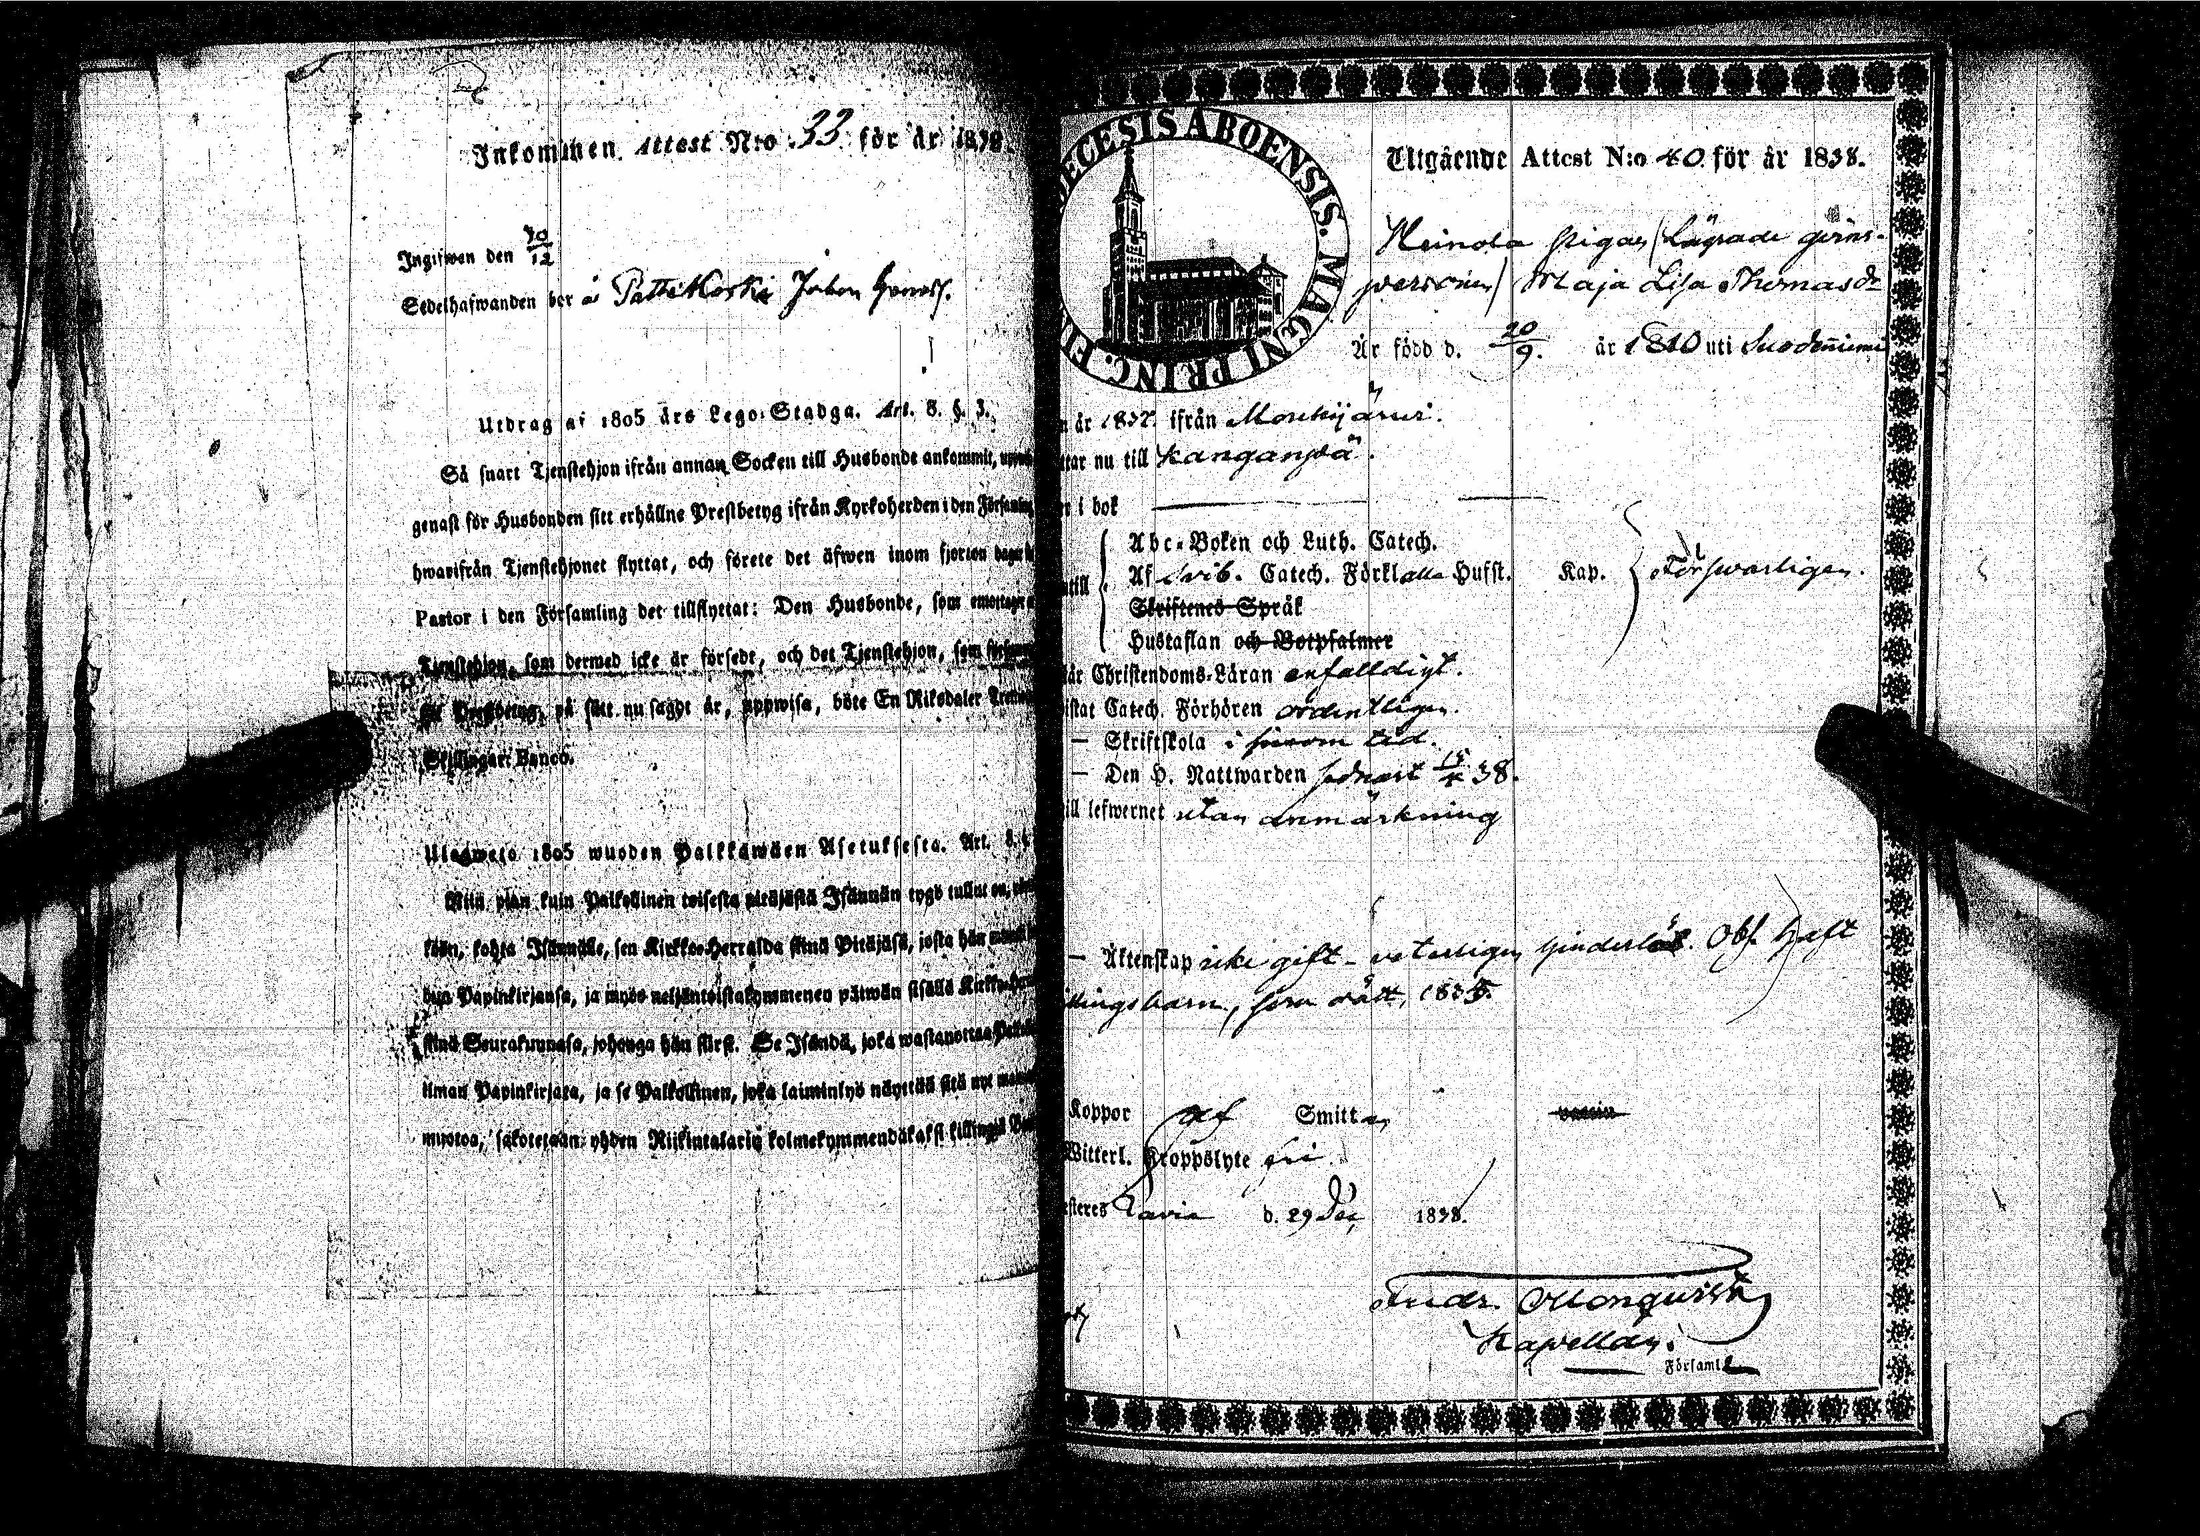 Inkommen Attest N:o 33 för år 1838.
Ingifwen den 30/12
Sedelhafwanden bor å Pattikoski
Utdrag af 1805 års Lego-Stadga. Art. 8. §. 3.
Så snart Tjenstehjon ifrån annan Socken till Husbonde ankommit,
genast för Husbonden sitt erhållne Prestbetyg ifrån Kyrkoherden i den Församling
hwarifrån Tjenstehjonet flyttat, och förete det äfwen inom fjorton dagar
Pastor i den Församling det tillflyttat: Den Husbonde, som emottager
Tjenstehjon, som dermed icke är försedt, och det Tjenstehjon, som
Prestbetyg, på sätt nu sagdt är, uppwisa, böte En Riksdaler
Skillingar Banco.
Ulosweto 1805 wuoden Palkkawäen Asetuksesta. Art. 8.
Niin pian kuin Palkollinen toisesta pitäjästä Isännän tygö tullut on,
kohta Isännälle, sen Kirkko-Herralda siinä Pitäjäsä, josta hän
Papinkirjansa, ja myös neljäntoistakymmenen päiwän sisällä
siinä Seurakunnasa, johonga hän siirsi. Se Isändä, joka wastanottaa
ilman Papinkirjata, ja se Palkollinen, joka laiminlyö näyttää sitä nyt
muotoa, sakotetaan yhden Riikintalarin kolmekymmendäkaksi killingiä
DIECESIS ABOENSIS. MAGNI PRINC. FI
Utgående Attest N:o 40 för år 1838.
Heinola pigan (Lägrade qvins-
person) Maja Lisa Thomasdr
Är född d. 20/9. år 1810 uti Suodenniemi
n år 1837. ifrån Mouhijärvi.
tar nu till Kangasala.
r i bok
Abc-Boken och Luth. Catech.
Af Svib. Catech. Förkl alla Hufst. Kap. Förswarligen.
ntill
Skriftenes Språk
Hustaflan och Botpsalmer
tår Christendoms-Läran enfalldigt.
istat Catech. Förhören ordentligen.
— Skriftskola i sinom tid.
— Den H. Nattwarden sednast 38.
ill lefwernet utan anmärkning
— Äktenskap icke gift - veterligen hinderlös. Obs. haft
illingsbarn, 1835.
Koppor haf Smittan
Witterl. Kroppslyte fri
esteres Lavia d. 29 Dec 1838.
Fredr. Monquist
Kapellan.
Församl